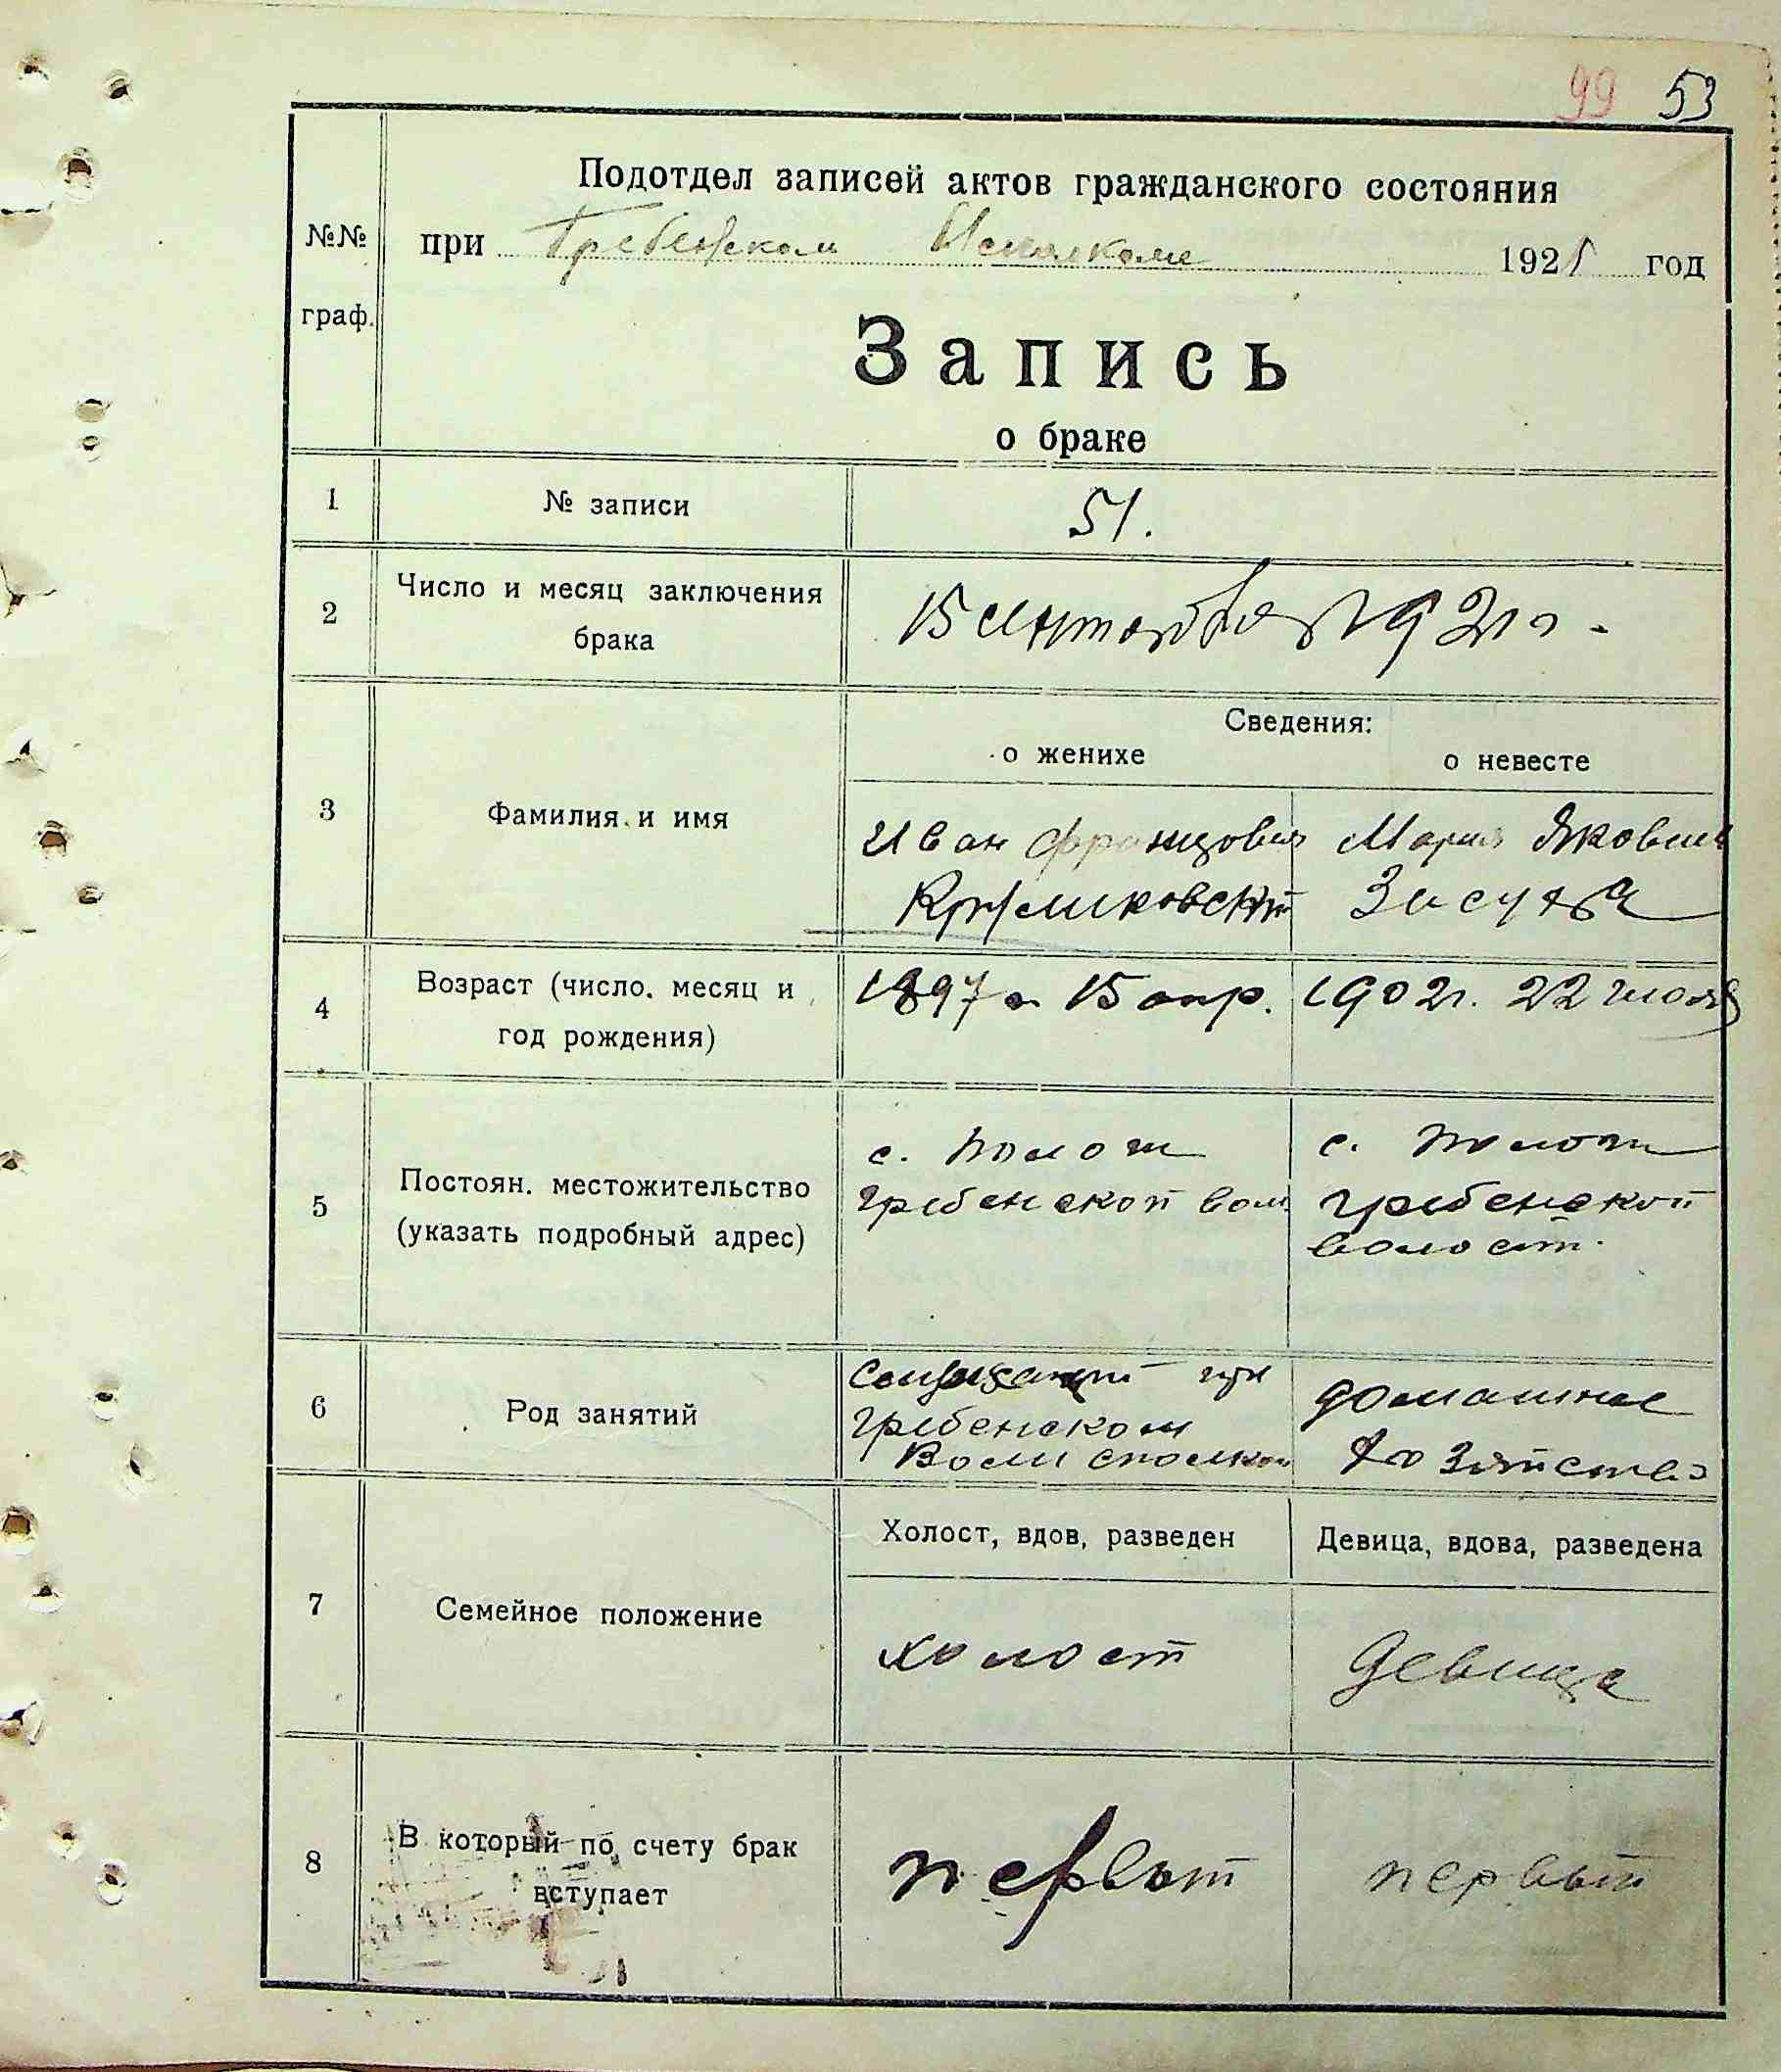 99 53
Подотдел записей актов гражданского состояния
№№ граф.
при Гребенском Исполкоме 1921 год
Запись
о браке
1 № записи 51.
2 Число и месяц заключения брака
15 сентября 1921 г.
Сведения:
о женихе о невесте
3 Фамилия и имя
Иван Францович Мария Яковлев
4 Возраст (число, месяц и год рождения)
1897 г. 15 апр. 1902 г. 22 июля
5 Постоян. местожительство (указать подробный адрес)
с. Полог с. Полог
Гребенской вол. Гребенской
волост.
6 Род занятий
при домашнее
Гребенском
Волисполком хозяйство
Холост, вдов, разведен Девица, вдова, разведена
7 Семейное положение
холост девица
8 В который по счету брак вступает
первый первый